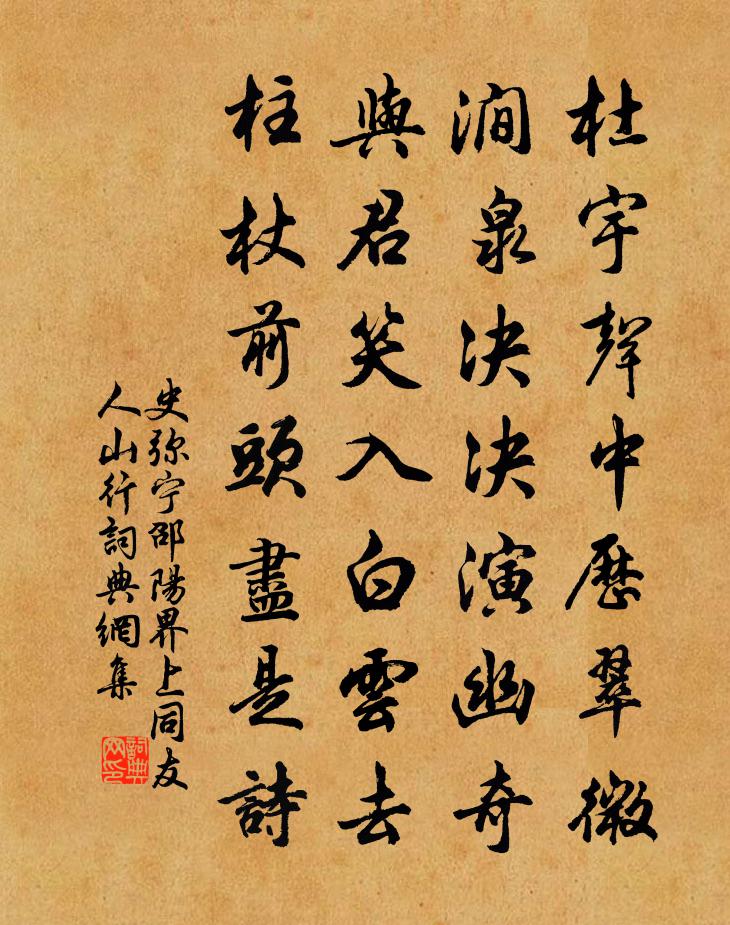 杜宇聲中歷翠微
澗泉決決演幽奇
與君笑入白雲去
柱杖前頭盡是詩
史弥宁邵陽界上同友
人山行詞典網集
詞典网印